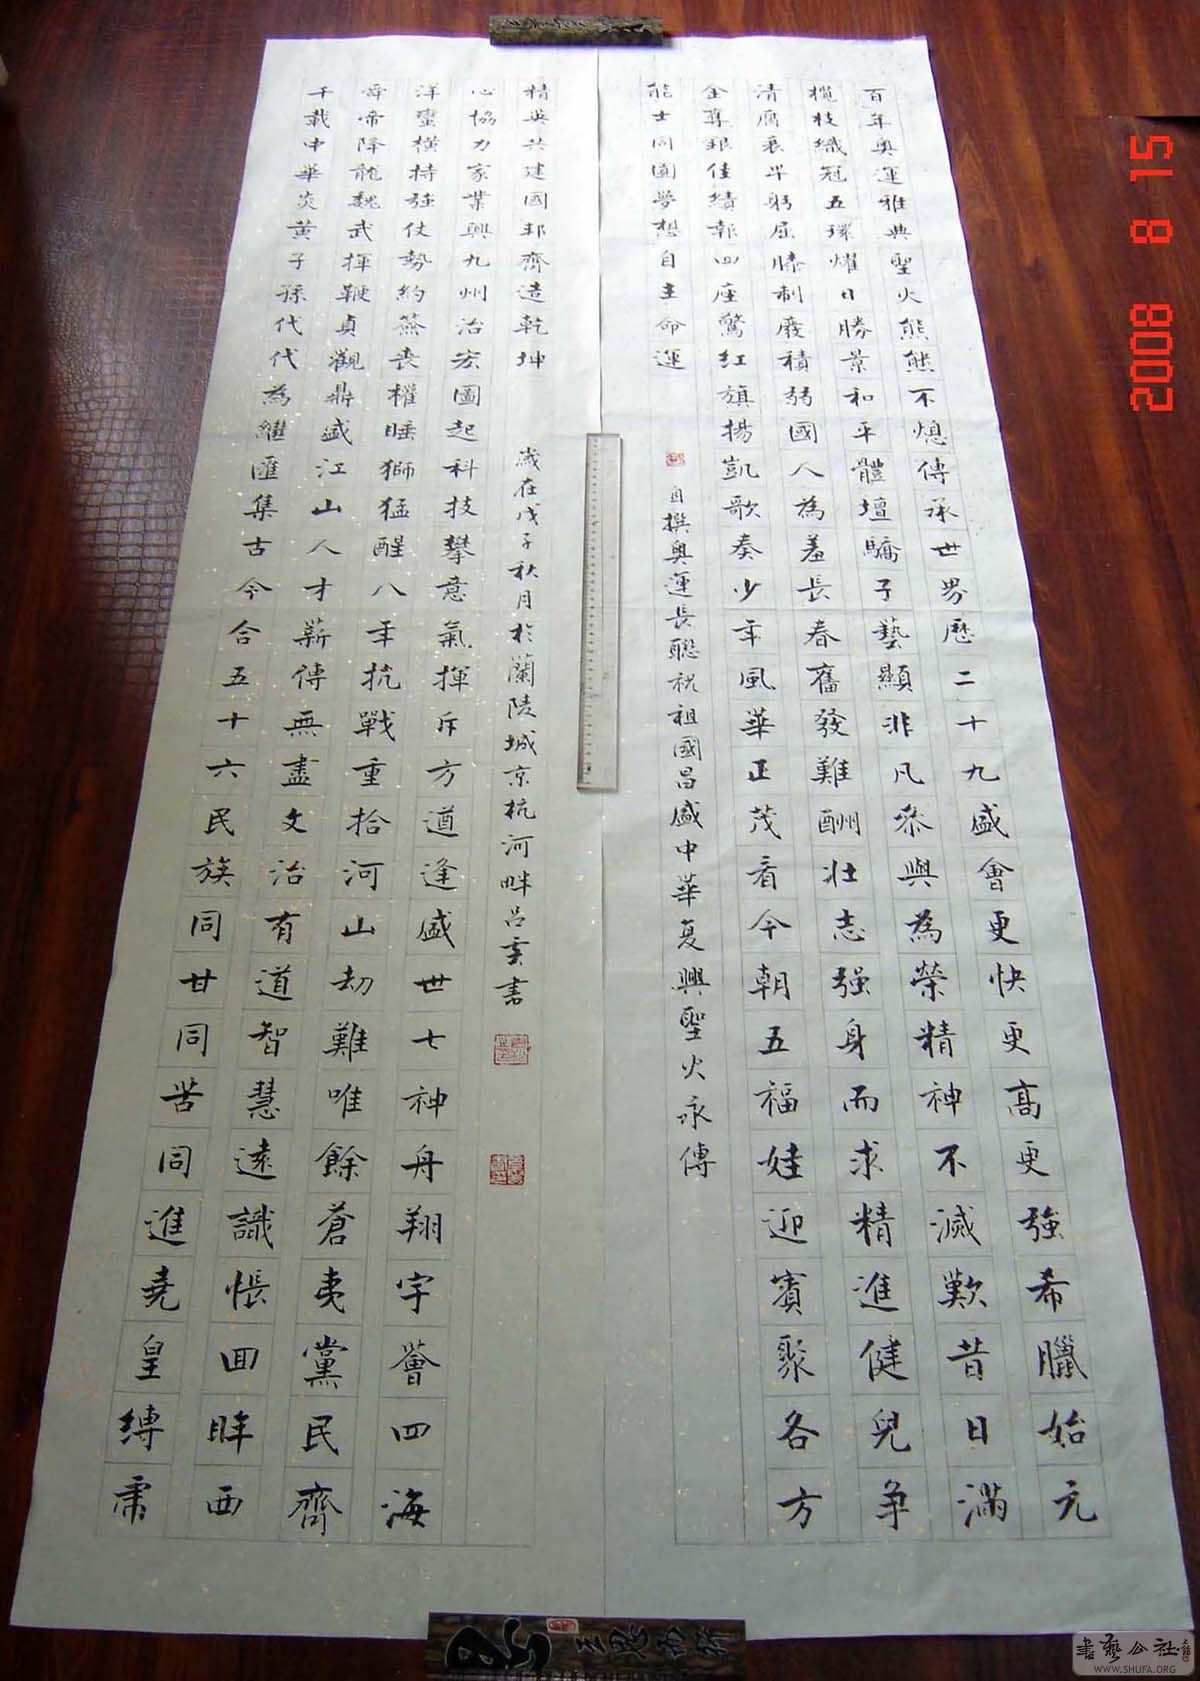 百年奥運雅典聖火熊熊不熄傳承世界歷二十九盛會更快更高更強希臘始元
欖枝織冠五環燿日勝景和平體壇驕子藝顯非凡參與為榮精神不滅歎昔日滿
清腐衰卑躬屈膝制廢積弱國人為羞長春奮發難酬壯志强身而求精進健兒爭
金奪銀佳績報四座驚紅旗揚凱歌奏少年風華正茂看今朝五福娃迎賓聚各方
能士同圓夢想自主命運
自撰奥運長聯祝祖國昌盛中華复興聖火永傳
千載中華炎黃子孫代代為繼匯集古今合五十六民族同甘同苦同進堯皇縛虎
舜帝降龍魏武揮鞭貞觀鼎盛江山人才薪傳無盡文治有道智慧遠識悵回眸西
洋蠻橫持強仗勢約簽喪權睡獅猛醒八年抗戰重拾河山劫難唯餘蒼夷黨民齊
心協力家業興九州治宏圖起科技攀意氣揮斥方遒逢盛世七神舟翔宇薈四海
精英共建國邦齊造乾坤
歲在戊子秋月於蘭陵城京杭河畔吕奕書
2008 8 15
書藝公社
WWW.SHUFA.ORG